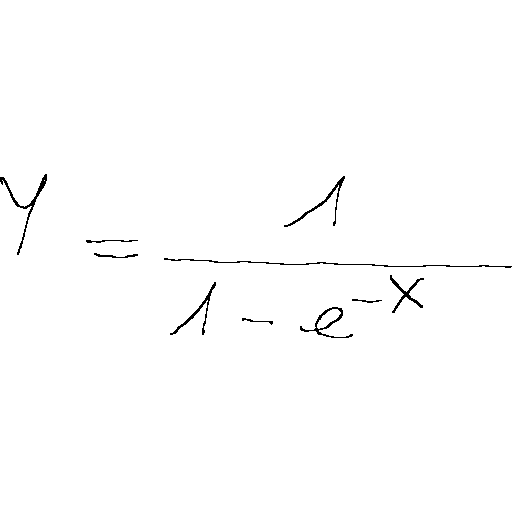 y = \frac{1}{1 - e^{-x}}